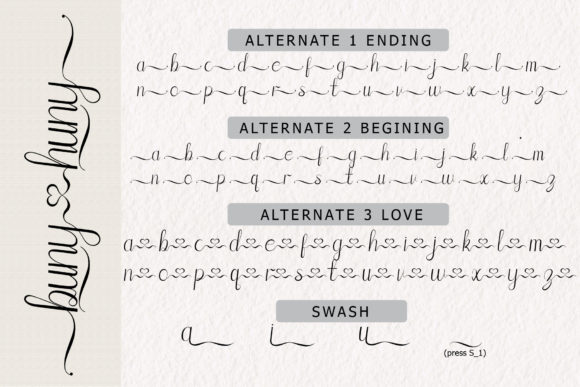 buny huny
ALTERNATE 1 ENDING
a b c d e f g h i j k l m
n o p q r s t u v w x y z
ALTERNATE 2 BEGINING
a b c d e f g h i j k l m
n o p q r s t u v w x y z
ALTERNATE 3 LOVE
a b c d e f g h i j k l m
n o p q r s t u v w x y z
SWASH
a i u
(press S_1)